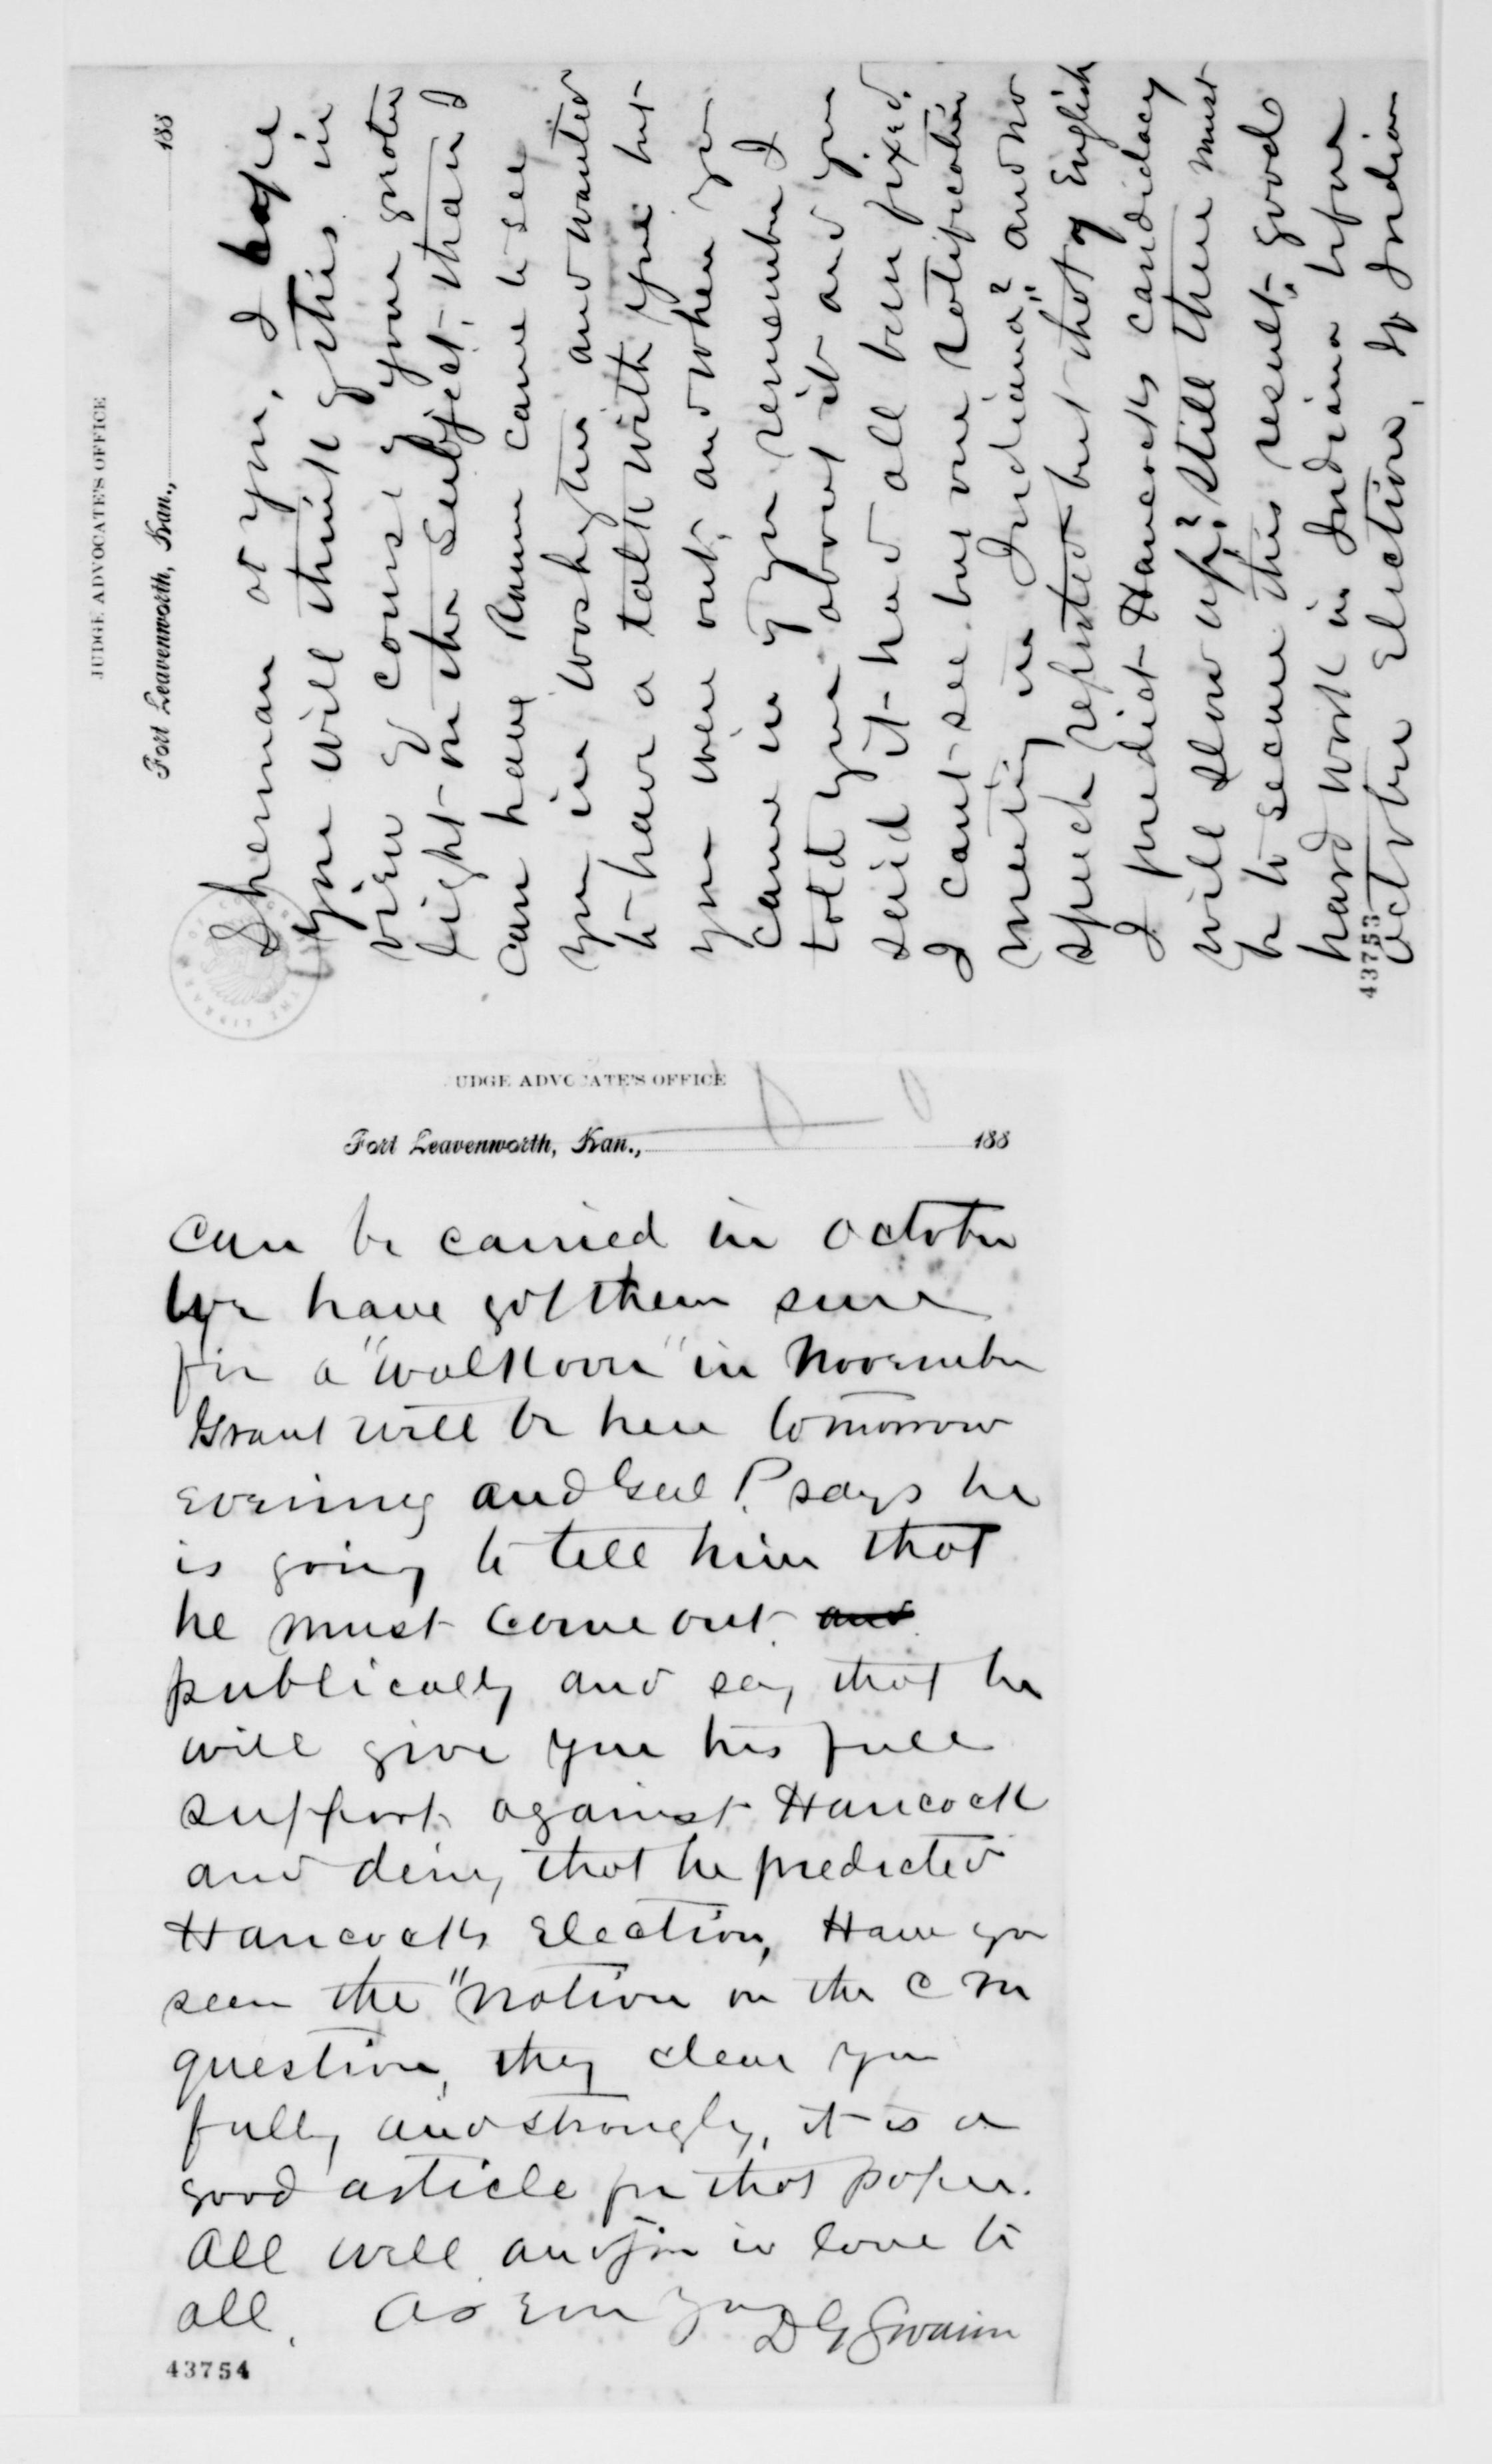 JUDGE ADVOCATE'S OFFICE
Fort Leavenworth, Kan., 188
Sherman or you, I hope
you will think of this in
view of course of your greater
light on the subject, than I
can have Rumm came to see
you in Washington and wanted
to have a talk with you but
you were out, and when you
came in if you remember I
told you about it and you
said it had all been fixed.
I cant see but one Notification
meeting in Indiana? and no
speech reported but that of English
I predict Hancocks candidacy
will slow up? still there must
be to secure this result, good
hard work in Indiana before
October Election, If Indian
43753
JUDGE ADVOCATE'S OFFICE
Fort Leavenworth, Kan., 188
can be carried in October
We have got them sure
for a "walkover" in November
Grant will be here tomorrow
evening and Genl P. says he
is going to tell him that
he must come out and
publically and say that he
will give you his full
support against Hancock
and deny that he predicted
Hancocks Election, Have you
seen the "Nation on the C M
question, they clear you
fully and strongly, it is a
good article for that paper.
All well and join in love to
all. As Ever Yours
D G Swaim
43754